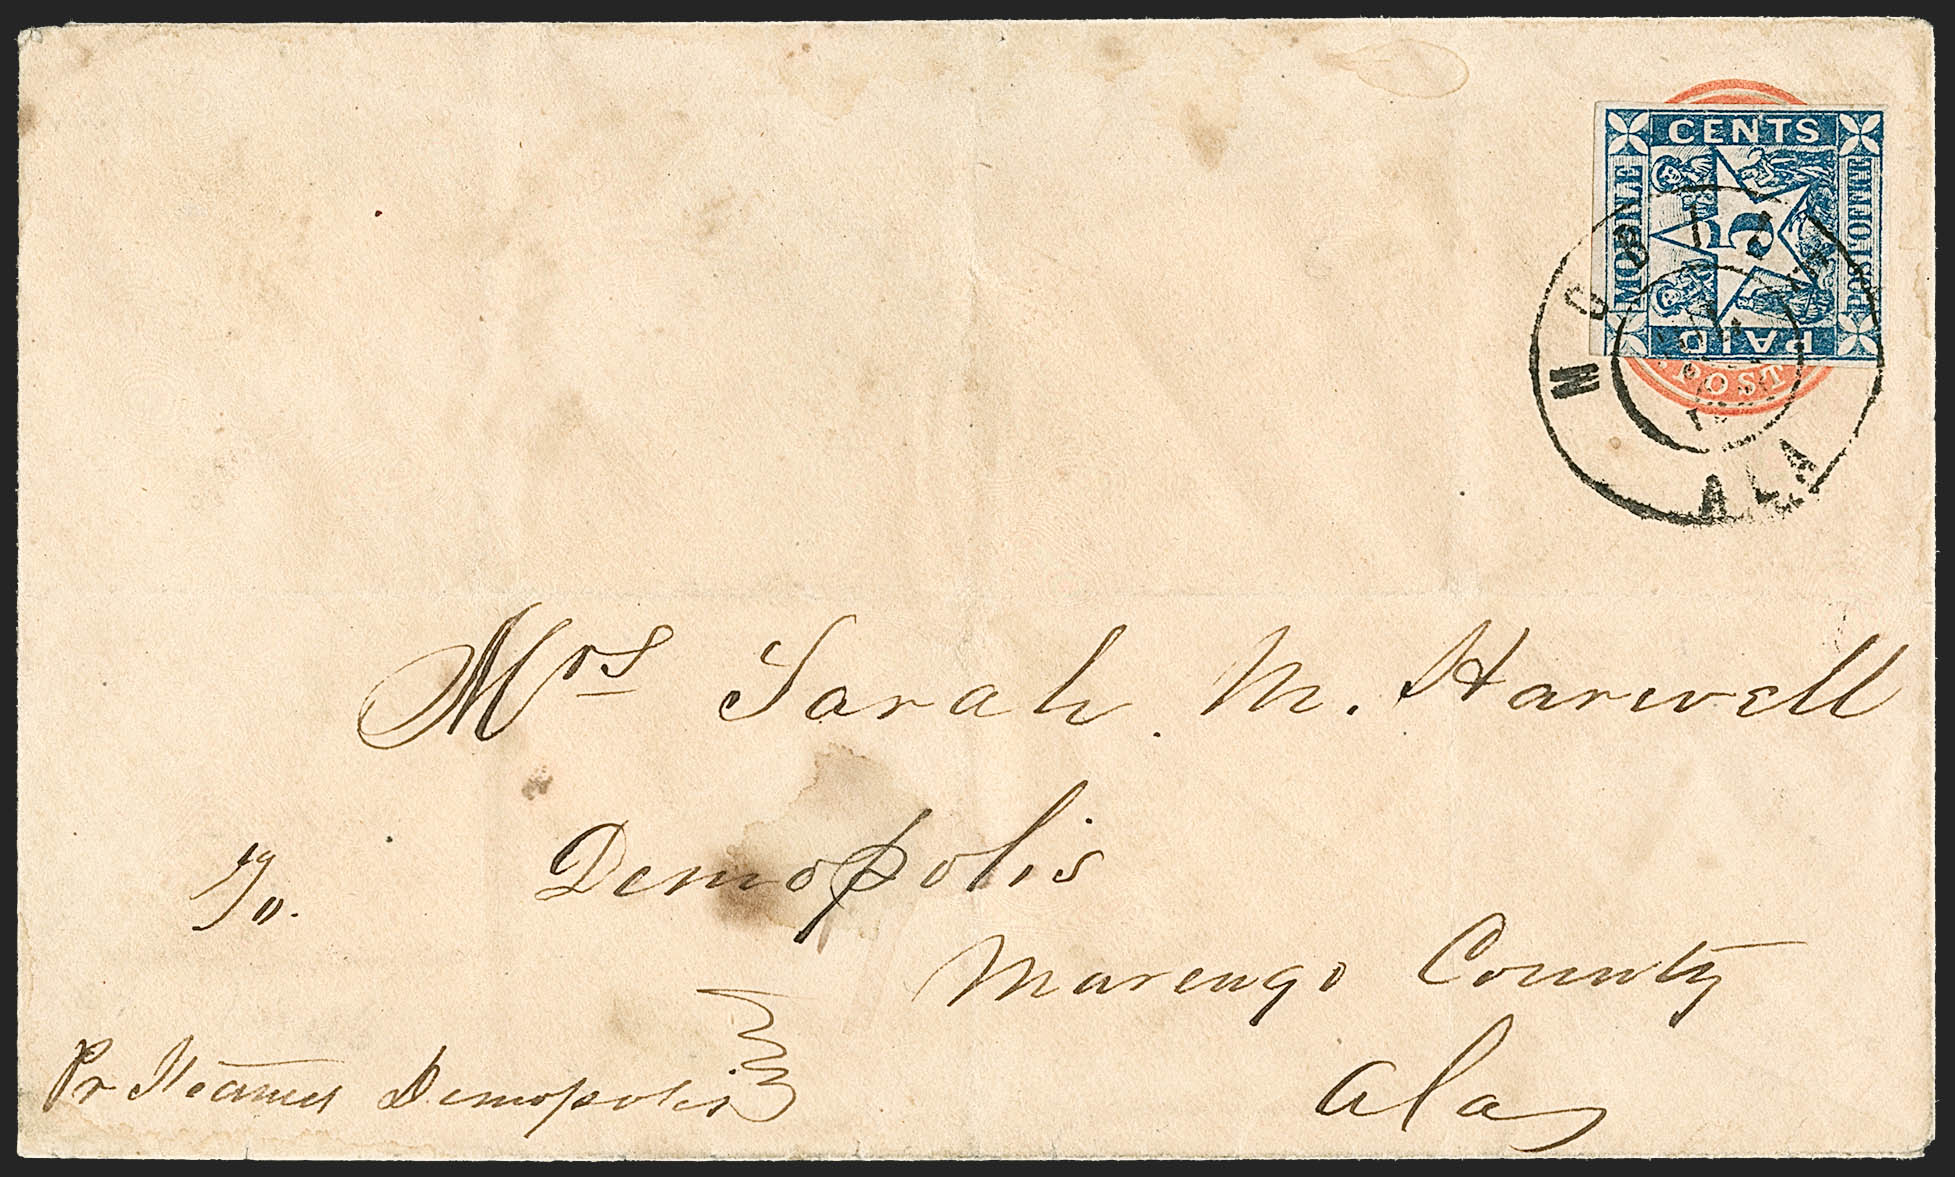 CENTS
MOBILE
5
POST OFFICE
PAID
POST
MOBILE
ALA
Mrs Sarah M. Harwell
To.
Demopolis
Marengo County
Ala
Pr Steamer Demopolis